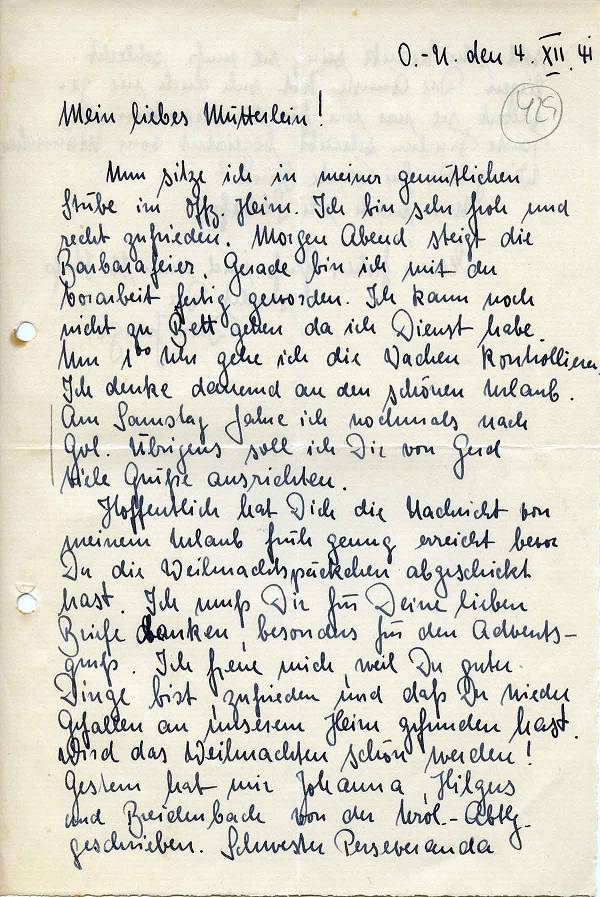 O.-U. den 4. XII. 41
425
Mein liebes Mütterlein!
Nun sitze ich in meiner gemütlichen
Stube im Offz. Heim. Ich bin sehr froh und
recht zufrieden. Morgen Abend steigt die
Barbarafeier. Gerade bin ich mit der
Vorarbeit fertig geworden. Ich kann noch
nicht zu Bett gehen da ich Dienst habe.
Um 1⁰⁰ Uhr gehe ich die Wachen kontrollieren.
Ich denke dauernd an den schönen Urlaub.
Am Samstag fahre ich nochmals nach
Übrigens soll ich Dir von Gerd
viele Grüße ausrichten.
Hoffentlich hat Dich die Nachricht von
meinem Urlaub früh genug erreicht bevor
Du die Weihnachtspäckchen abgeschickt
hast. Ich muß Dir für Deine lieben
Briefe danken, besonders für den Advents-
gruß. Ich freue mich, weil Du guter
Dinge bist, zufrieden und daß Du wieder
Gefallen an unserem Heim gefunden hast.
Wird das Weihnachten schön werden!
Gestern hat mir Johanna, Hilgers
und Breidenbach von der Urol.-Abtlg.
geschrieben. Schwester Perseveranda